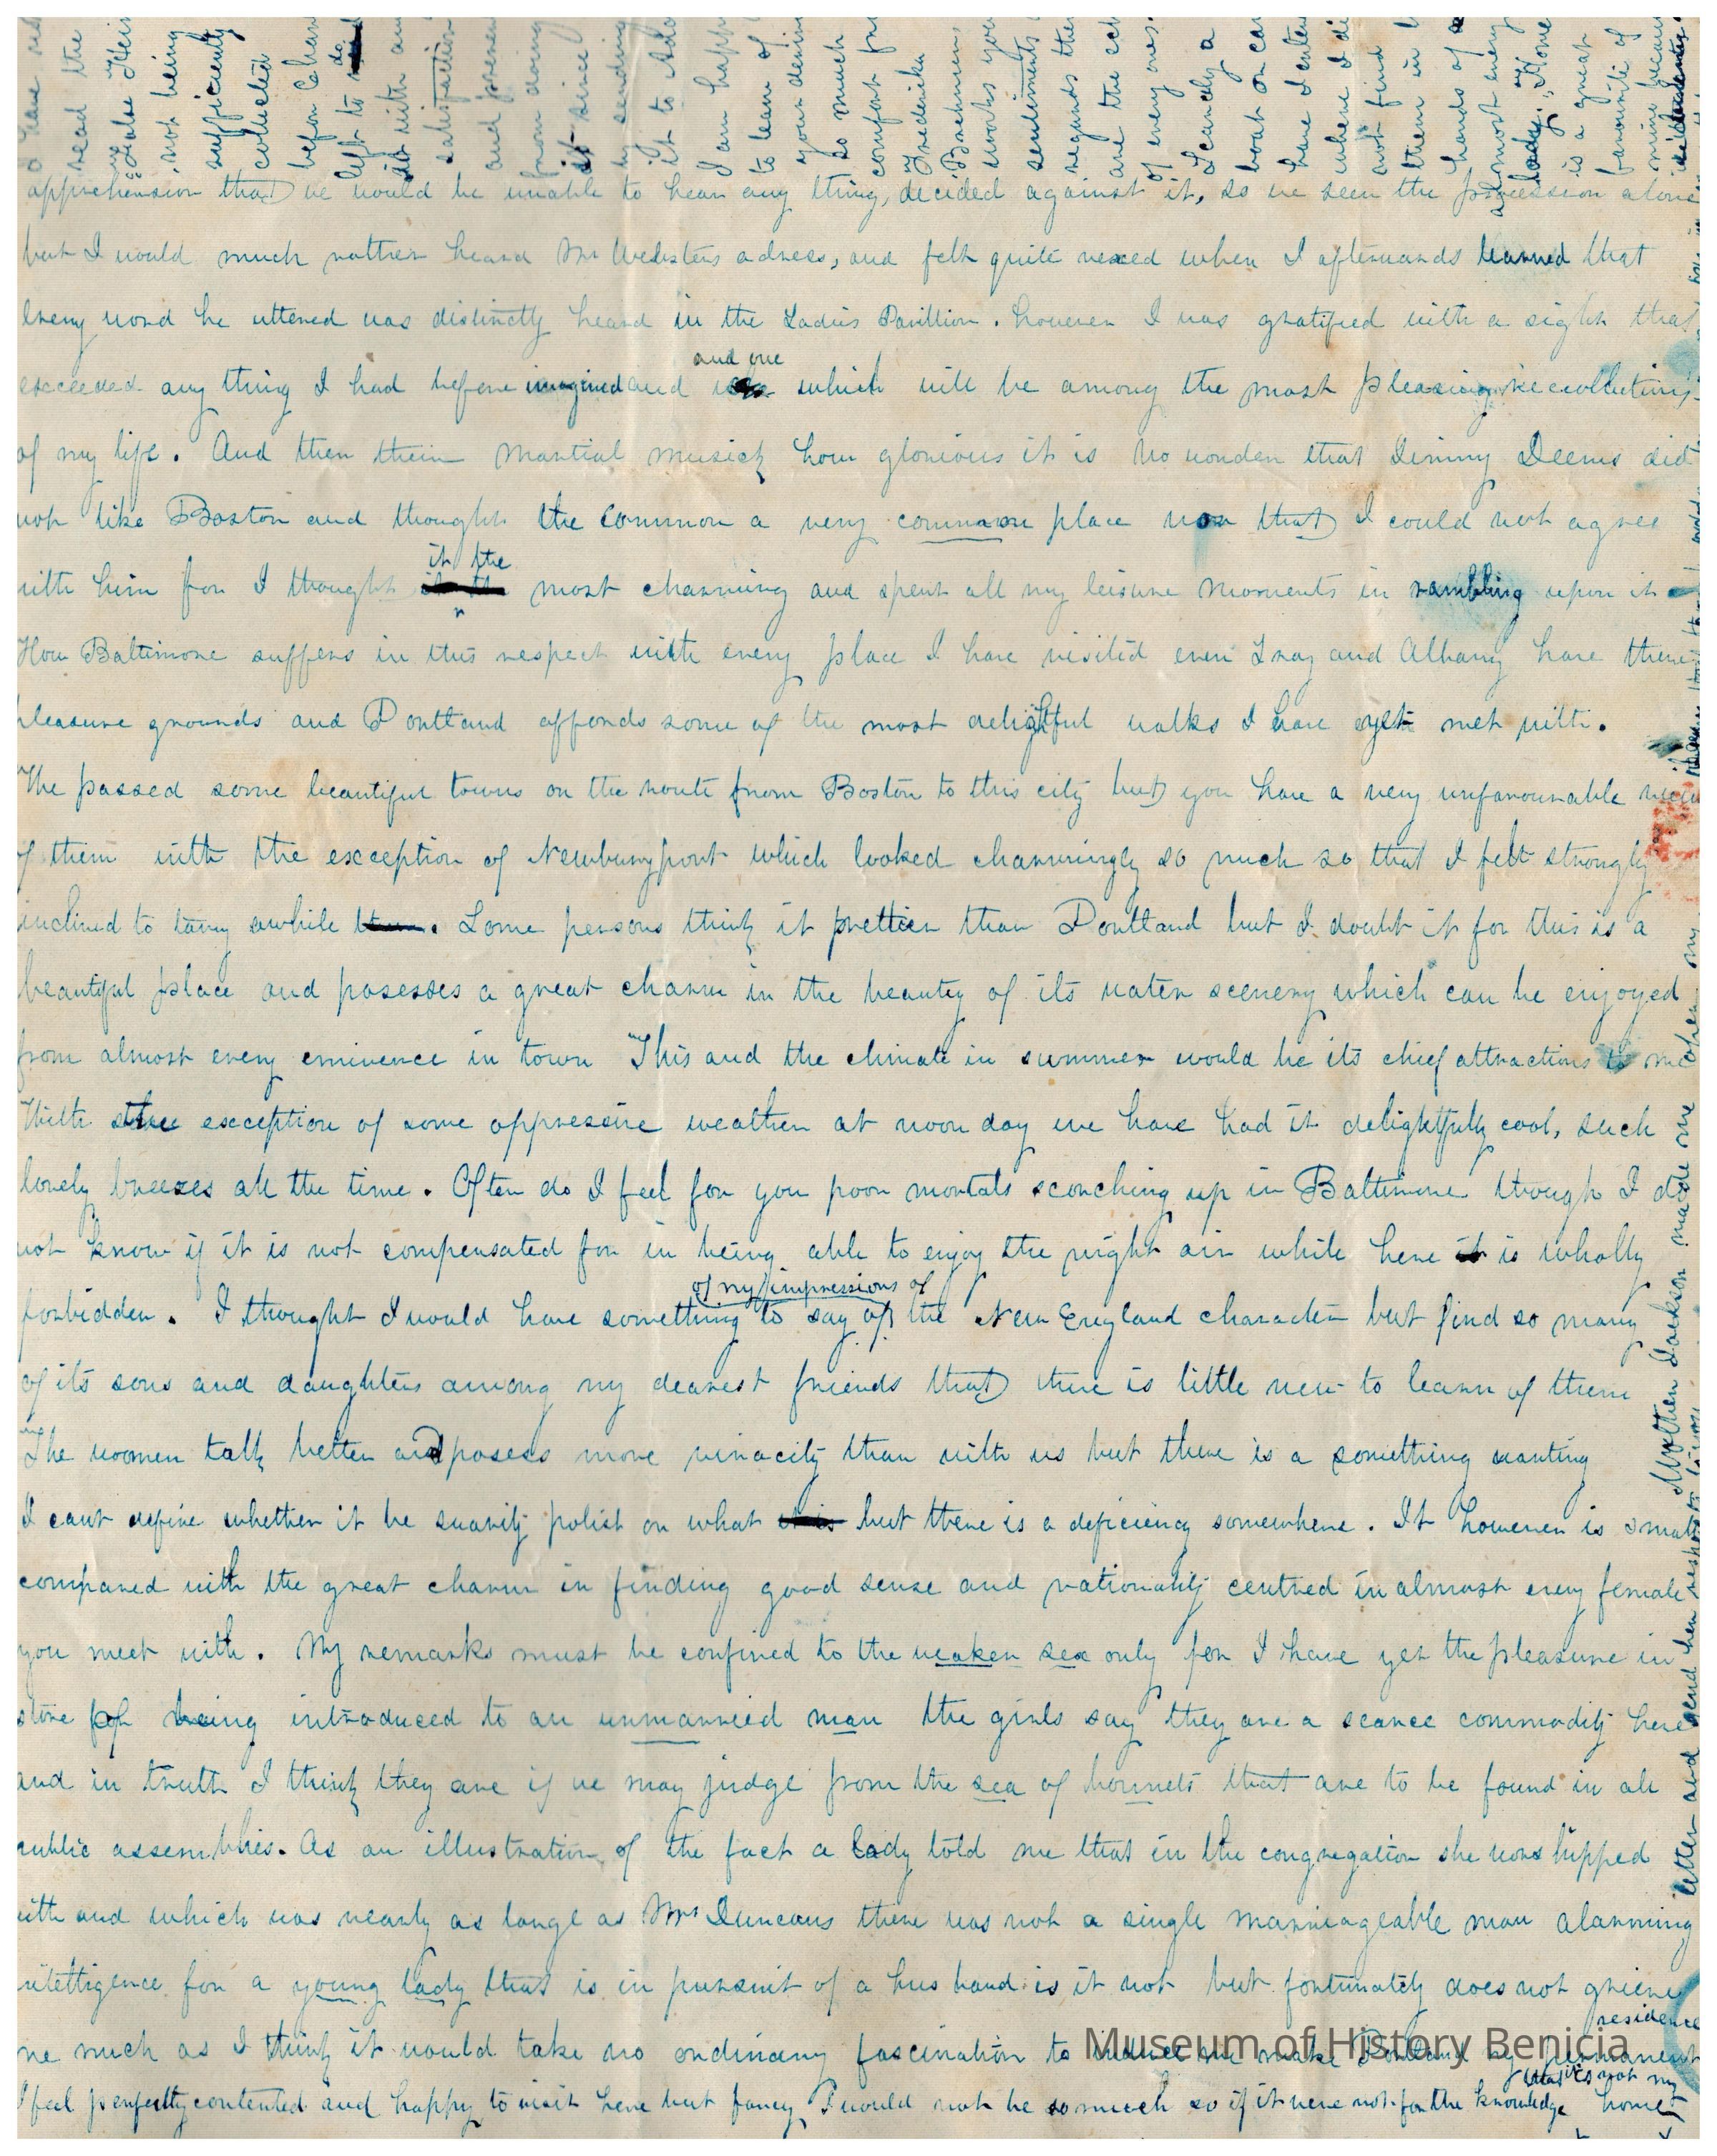 apprehension that we would be unable to hear any thing, decided against it, so we seen the procession alone
but I would much rather heard Mr Websters adress, and felt quite vexed when I afterwards learned that
every word he uttered was distinctly heard in the Ladies Pavillion. however I was gratified with a sight that
and one
exceeded any thing I had before imagined and which will be among the most pleasing recollections
of my life. And then their martial musick how glorious it is no wonder that Jimmy Deems did
not like Boston and thought the Common a very common place now that I could not agree
it the
with him for I thought most charming and spent all my leisure moments in rambling upon it
How Baltimore suffers in this respect with every place I have visited even Troy and Albany have there
pleasure grounds and Portland affords some of the most delightful walks I have yet met with.
We passed some beautiful towns on the route from Boston to this city but you have a very unfavourable view
of them with the exception of Newburyport which looked charmingly so much so that I felt strongly
inclined to tarry awhile. Some persons think it prettier than Portland but I doubt it for this is a
beautiful place and posesses a great charm in the beauty of its water scenery which can be enjoyed
from almost every eminence in town This and the climate in summer would be its chief attractions to me
With the exception of some oppressive weather at noon day we have had it delightfully cool, such
lovely breezes all the time. Often do I feel for you poor mortals scorching up in Baltimore though I do
not know if it is not compensated for in being able to enjoy the night air while here it is wholly
of my impressions of
forbidden. I thought I would have something to say of the New England character but find so many
of its sons and daughters among my dearest friends that there is little new to learn of them
The women talk better and posess more vivacity than with us but there is a something wanting
I cant define whether it be suavity polish or what but there is a deficiency somewhere. It however is small
compared with the great charm in finding good sense and rationality centred in almost every female
you meet with. My remarks must be confined to the weaker sex only for I have yet the pleasure in
store of being introduced to an unmarried man the girls say they are a scarce commodity here
and in truth I think they are if we may judge from the sea of bonnets that are to be found in all
public assemblies. As an illustration of the fact a lady told me that in the congregation she worshipped
with and which was nearly as large as Mr Duncans there was not a single marriageable man alarming
intelligence for a young lady that is in pursuit of a husband is it not but fortunately does not grieve
residence
me much as I think it would take no ordinary fascination to make me make Portland my permanent
that it is not my
I feel perfectly contented and happy to visit here but fancy I would not be so much so if it were not for the knowledge home
I have not
read the
"False Heir"
not being
sufficiently
collected
before Cherr
left to do
it with any
satisfaction
and
from doing
it since
by sending
it to
I am happy
to learn of
your deriving
so much
comfort from
Frederika
Bremmers
works your
sentiments
regards them
are the echo
of every ones
Scarcely a
boat or car
have I entered
where I did
not find
them in the
hands of
almost every
lady. "Home"
is a great
favourite of
mine because
Mother Jackson made me
letter and send her respects to you
Museum of History Benicia